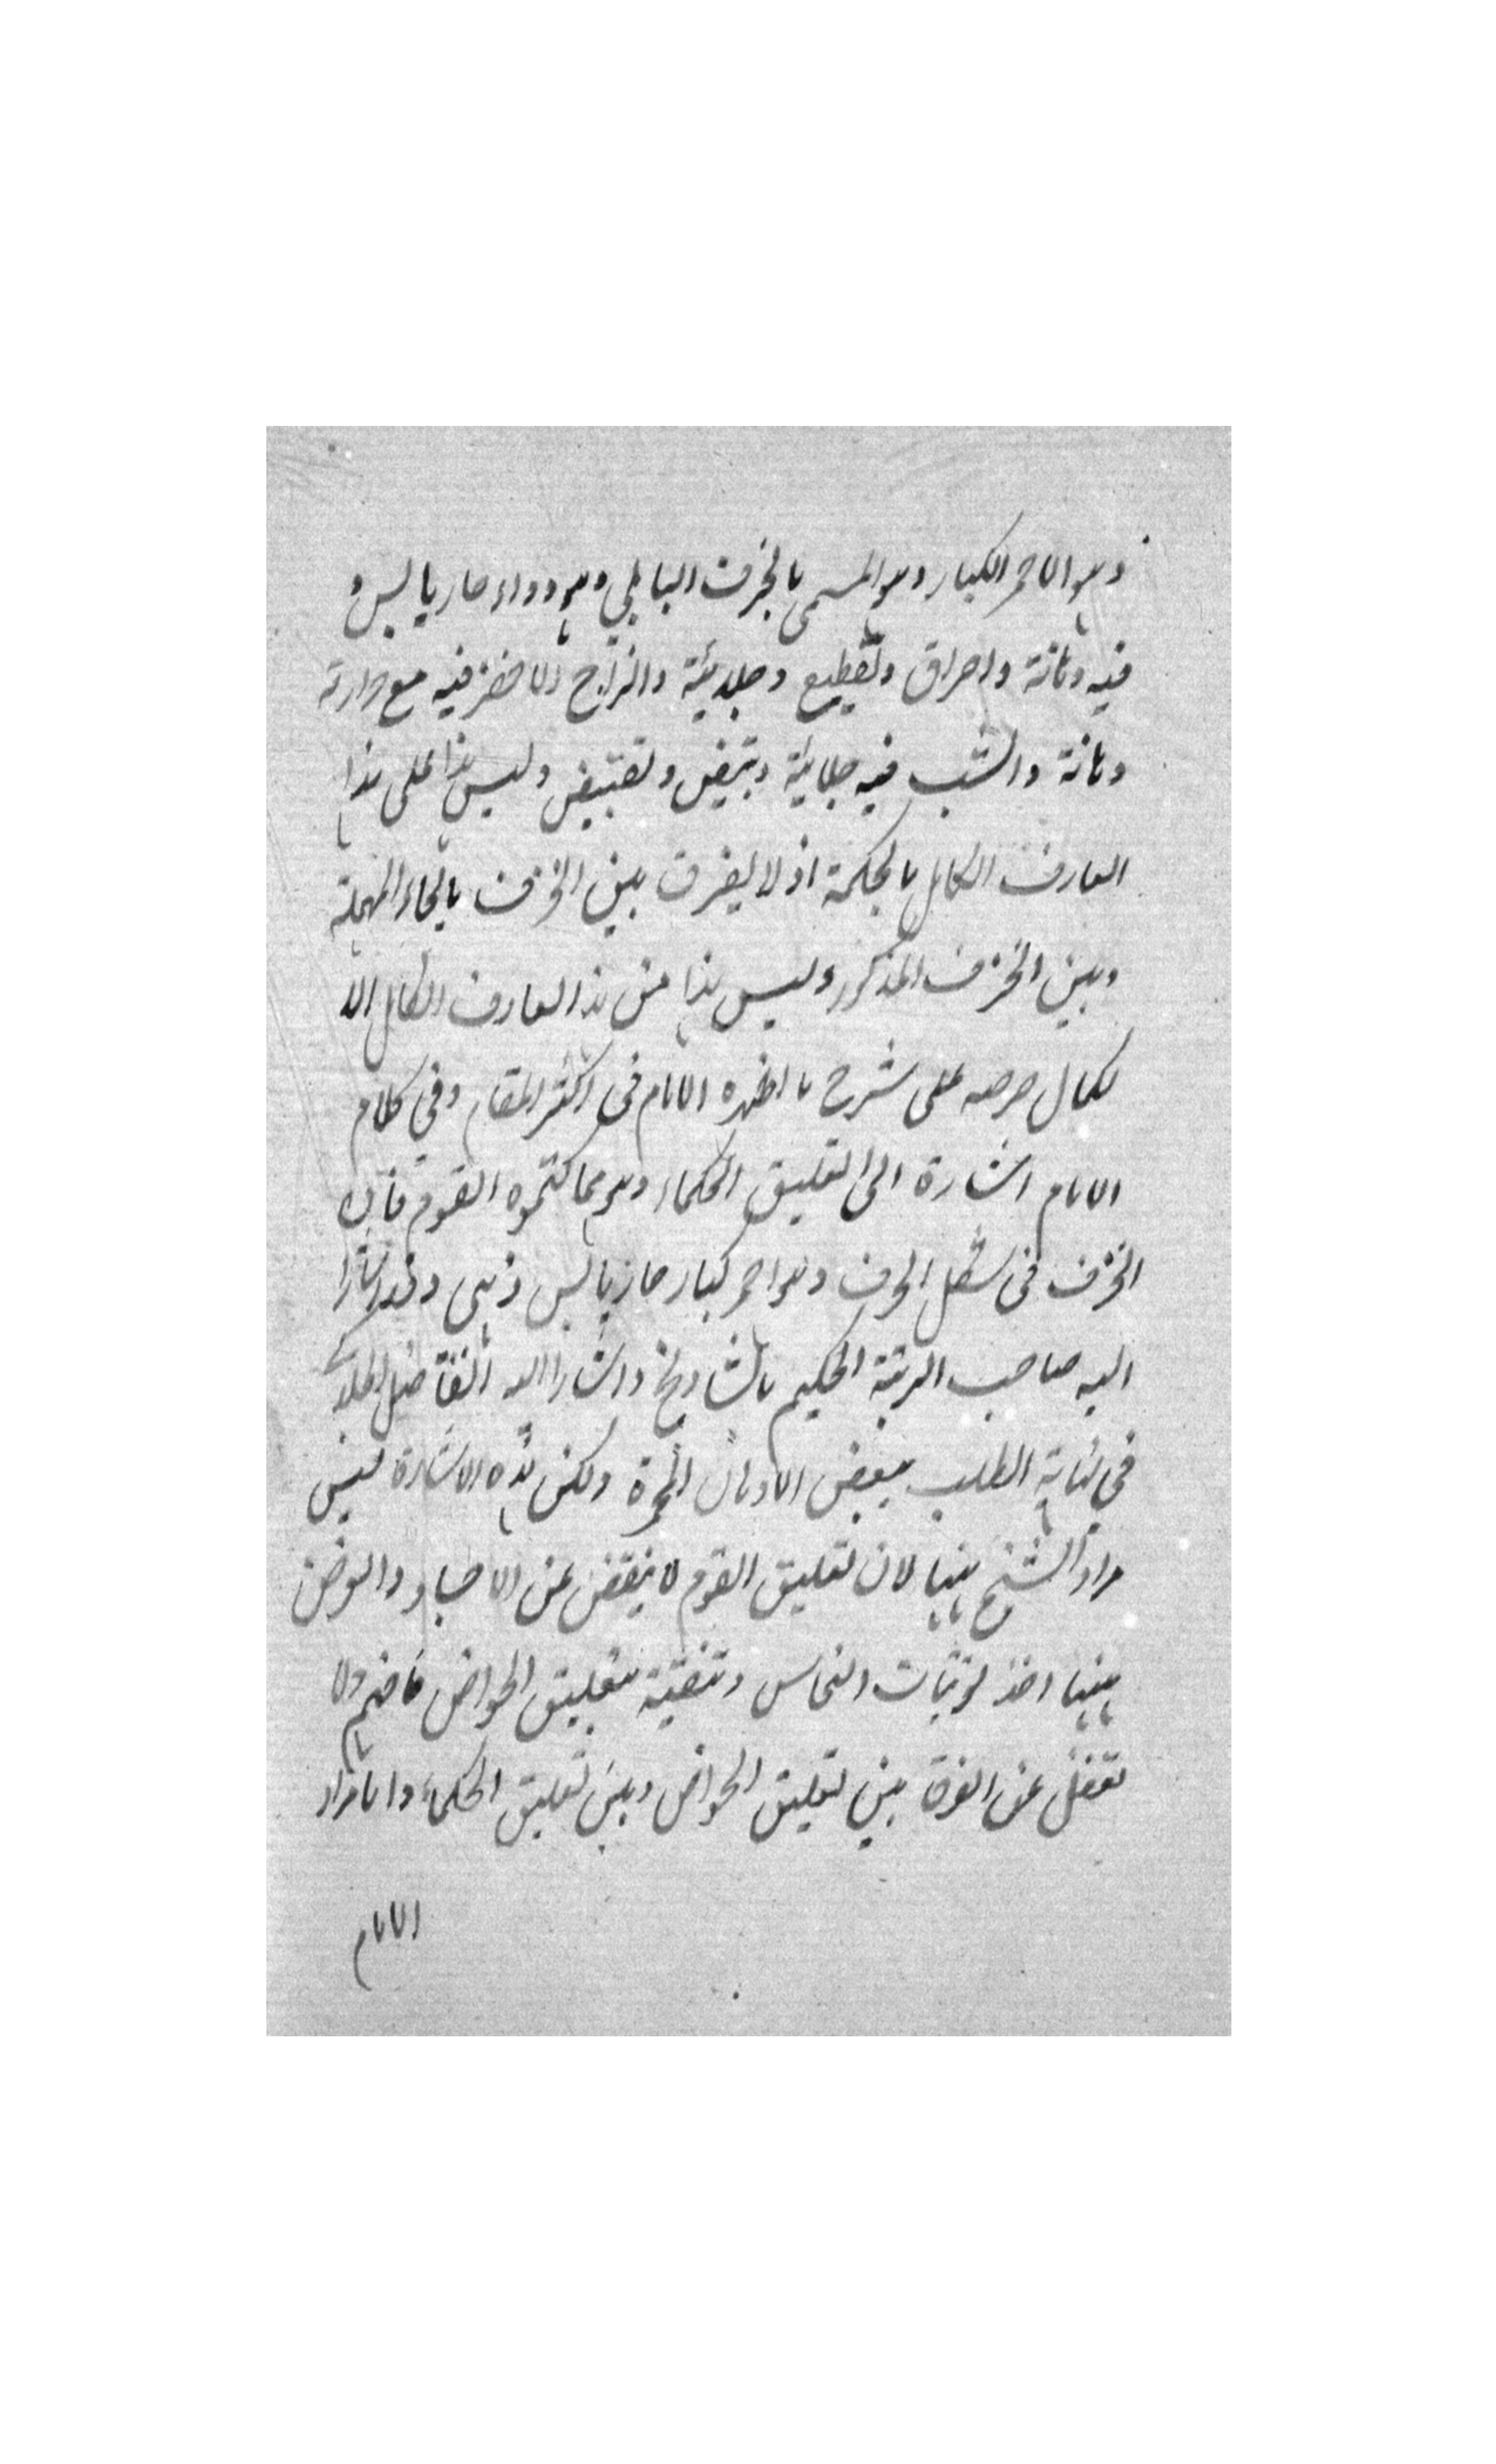 وهو الاحمر الكبار وهو المسمى بالخزف البابلي وهو دواء حار يابس و
فيه دهانة واحراق وتقطيع وجلديئة والزاج الاخضر فيه مع حرارته
دهانة والشب فيه جلائية وتبيض وتقبيض وليس هذا على هذا
العارف الكامل بالحكمة اذ لا يفرق بين الحرف بالحاء المهملة
وبين الخزف المذكور وليس هذا من هذا العارف الكامل الا
لكمال حرصه على شرح ما اظهره الامام فى اكثر المقام وفي كلام
الامام اشارة الى تعليق الحكماء وهو مما كتموه القوم فان
الخزف فى شكل الحرف وهو احمر كبار حار يابس ذهبى وقد اشار
اليه صاحب الرتبة الحكيم بالشادنج واشار اليه الفاضل الجلدكى
في نهاية الطلب ببعض الادهان المحمرة ولكن هذه الاشارة ليس
مراد الشيخ ههنا لان تعليق القوم لا ينقض عن الاجساد والغرض
ههنا اخذ توتيات النحاس وتنقيته بتعليق الخواص فافهم ولا
تغفل عن الفرق بين تعليق الخواص وبين تعليق الحكماء واما مراد
الامام